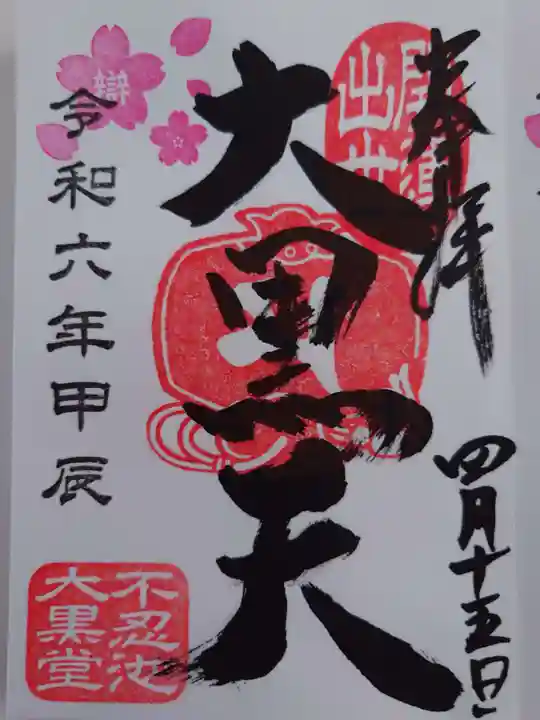 奉拝
四月十五日
大黒天
出世
辯
令和六年甲辰
不忍池
大黒堂